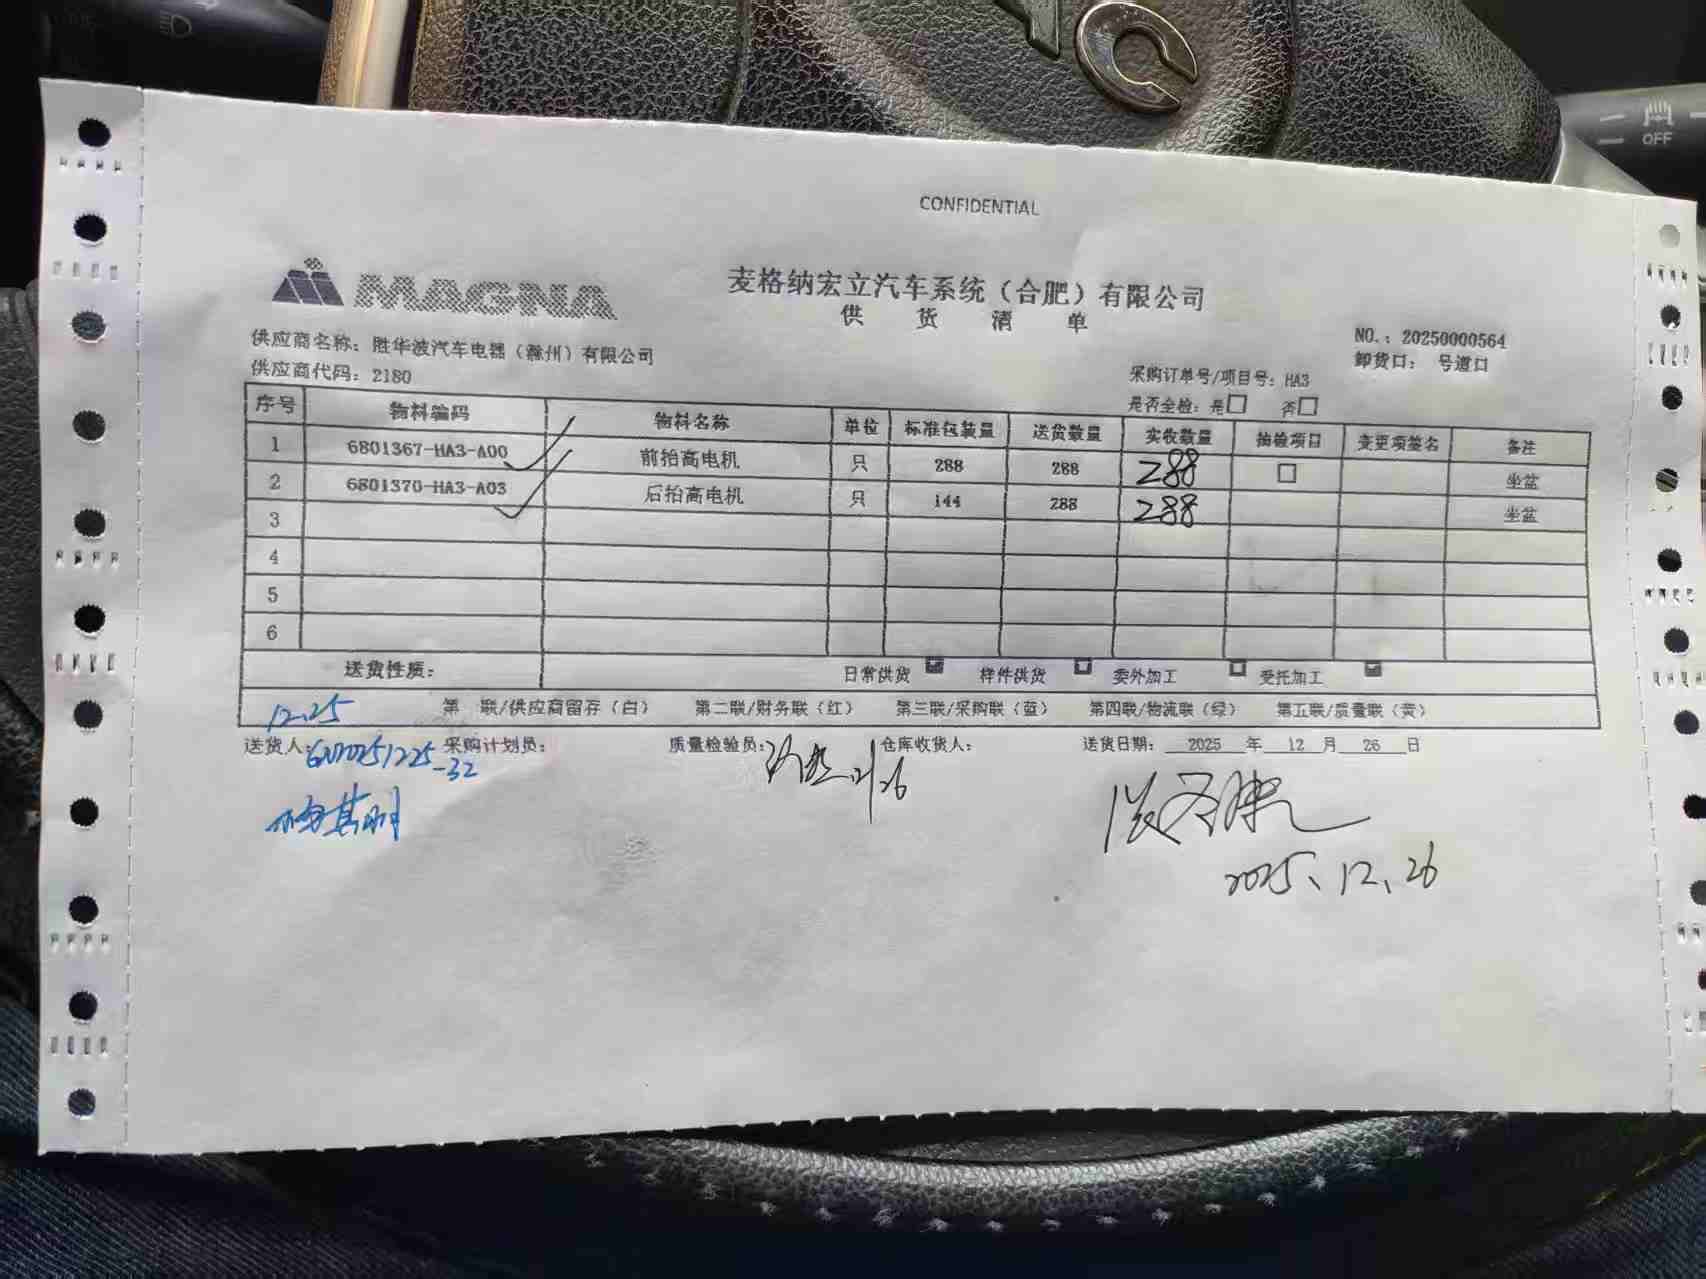 OFF
CONFIDENTIAL
MAGNA
麦格纳宏立汽车系统（合肥）有限公司
供 货 清 单
供应商名称：胜华波汽车电器（滁州）有限公司
NO.：20250000564
供应商代码：2180
采购订单号/项目号：HA3
卸货口： 号道口
是否全检：是□ 否□
序号 物料编码 物料名称 单位 标准包装量 送货数量 实收数量 抽检项目 变更项签名 备注
1 6801367-HA3-A00 前抬高电机 只 288 288 288 □ 坐盆
2 6801370-HA3-A03 后抬高电机 只 144 288 288 坐盆
3
4
5
6
送货性质： 日常供货 样件供货 委外加工 受托加工
12.25
第 联/供应商留存（白） 第二联/财务联（红） 第三联/采购联（蓝） 第四联/物流联（绿） 第五联/质量联（黄）
送货人： 采购计划员： 质量检验员： 仓库收货人： 送货日期： 2025 年 12 月 26 日
-32
2025、12、26